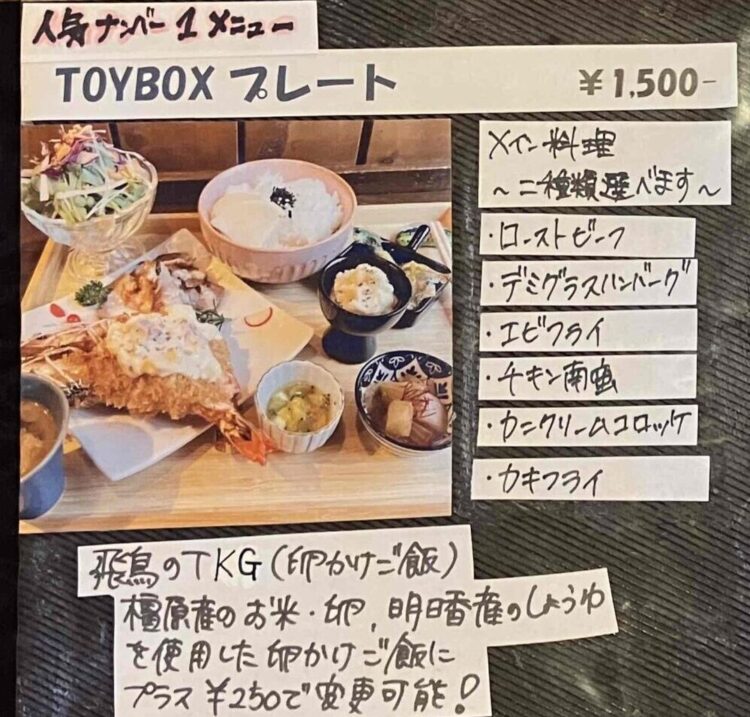 人気ナンバー1メニュー
TOYBOX プレート ¥1,500-
メイン料理
～二種類選べます～
・ローストビーフ
・デミグラスハンバーグ
・エビフライ
・チキン南蛮
・カニクリームコロッケ
・カキフライ
飛鳥のTKG(卵かけご飯)
橿原産のお米・卵,明日香産のしょうゆ
を使用した卵かけご飯に
プラス¥250で変更可能!